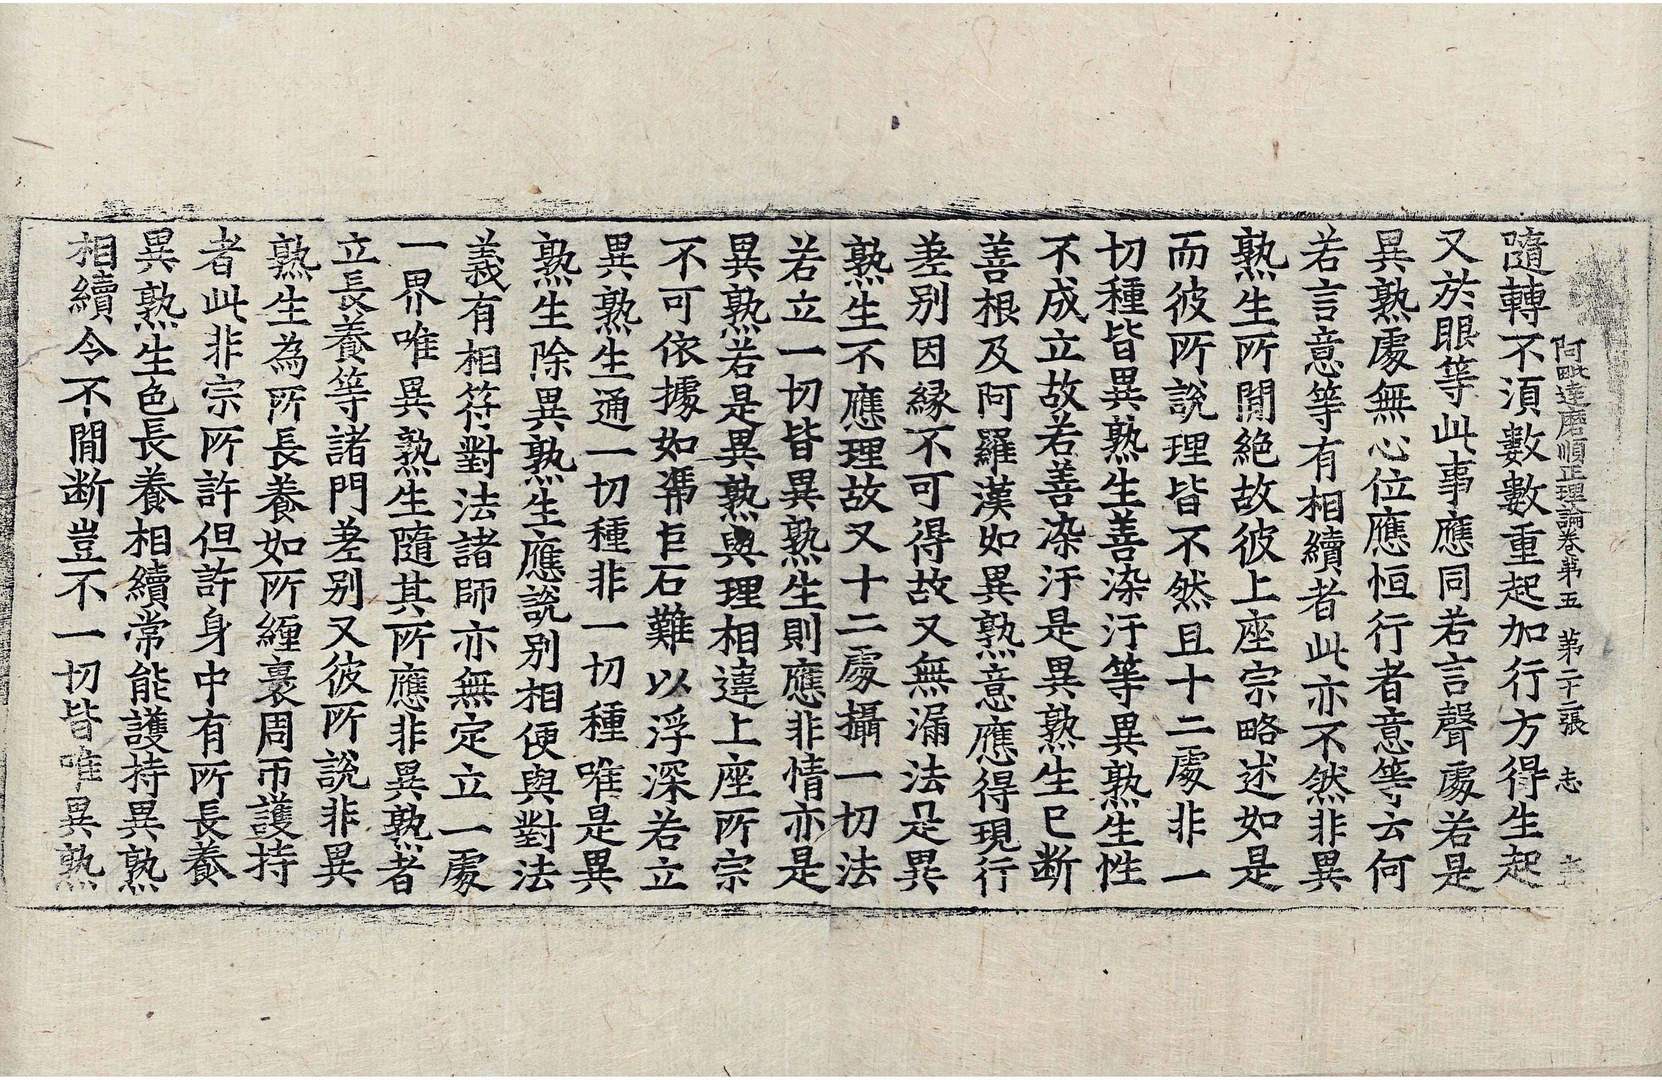 阿毗達磨順正理論卷第五 第二十二張 志
隨轉不須數數重起加行方得生起
又於眼等此事應同若言聲處若是
異熟處無心位應恒行者意等云何
若言意等有相續者此亦不然非異
熟生所間絶故彼上座宗略述如是
而彼所說理皆不然且十二處非一
切種皆異熟生善染汙等異熟生性
不成立故若善染汙是異熟生已断
善根及阿羅漢如異熟意應得現行
差別因縁不可得故又無漏法是異
熟生不應理故又十二處攝一切法
若立一切皆異熟生則應非情亦是
異熟若是異熟與理相違上座所宗
不可依據如馮巨石難以浮深若立
異熟生通一切種非一切種唯是異
熟生除異熟生應說別相便與對法
義有相符對法諸師亦無定立一處
一界唯異熟生隨其所應非異熟者
立長養等諸門差別又彼所說非異
熟生為所長養如所纏裹周帀護持
者此非宗所許但許身中有所長養
異熟生色長養相續常能護持異熟
相續令不間断豈不一切皆唯異熟